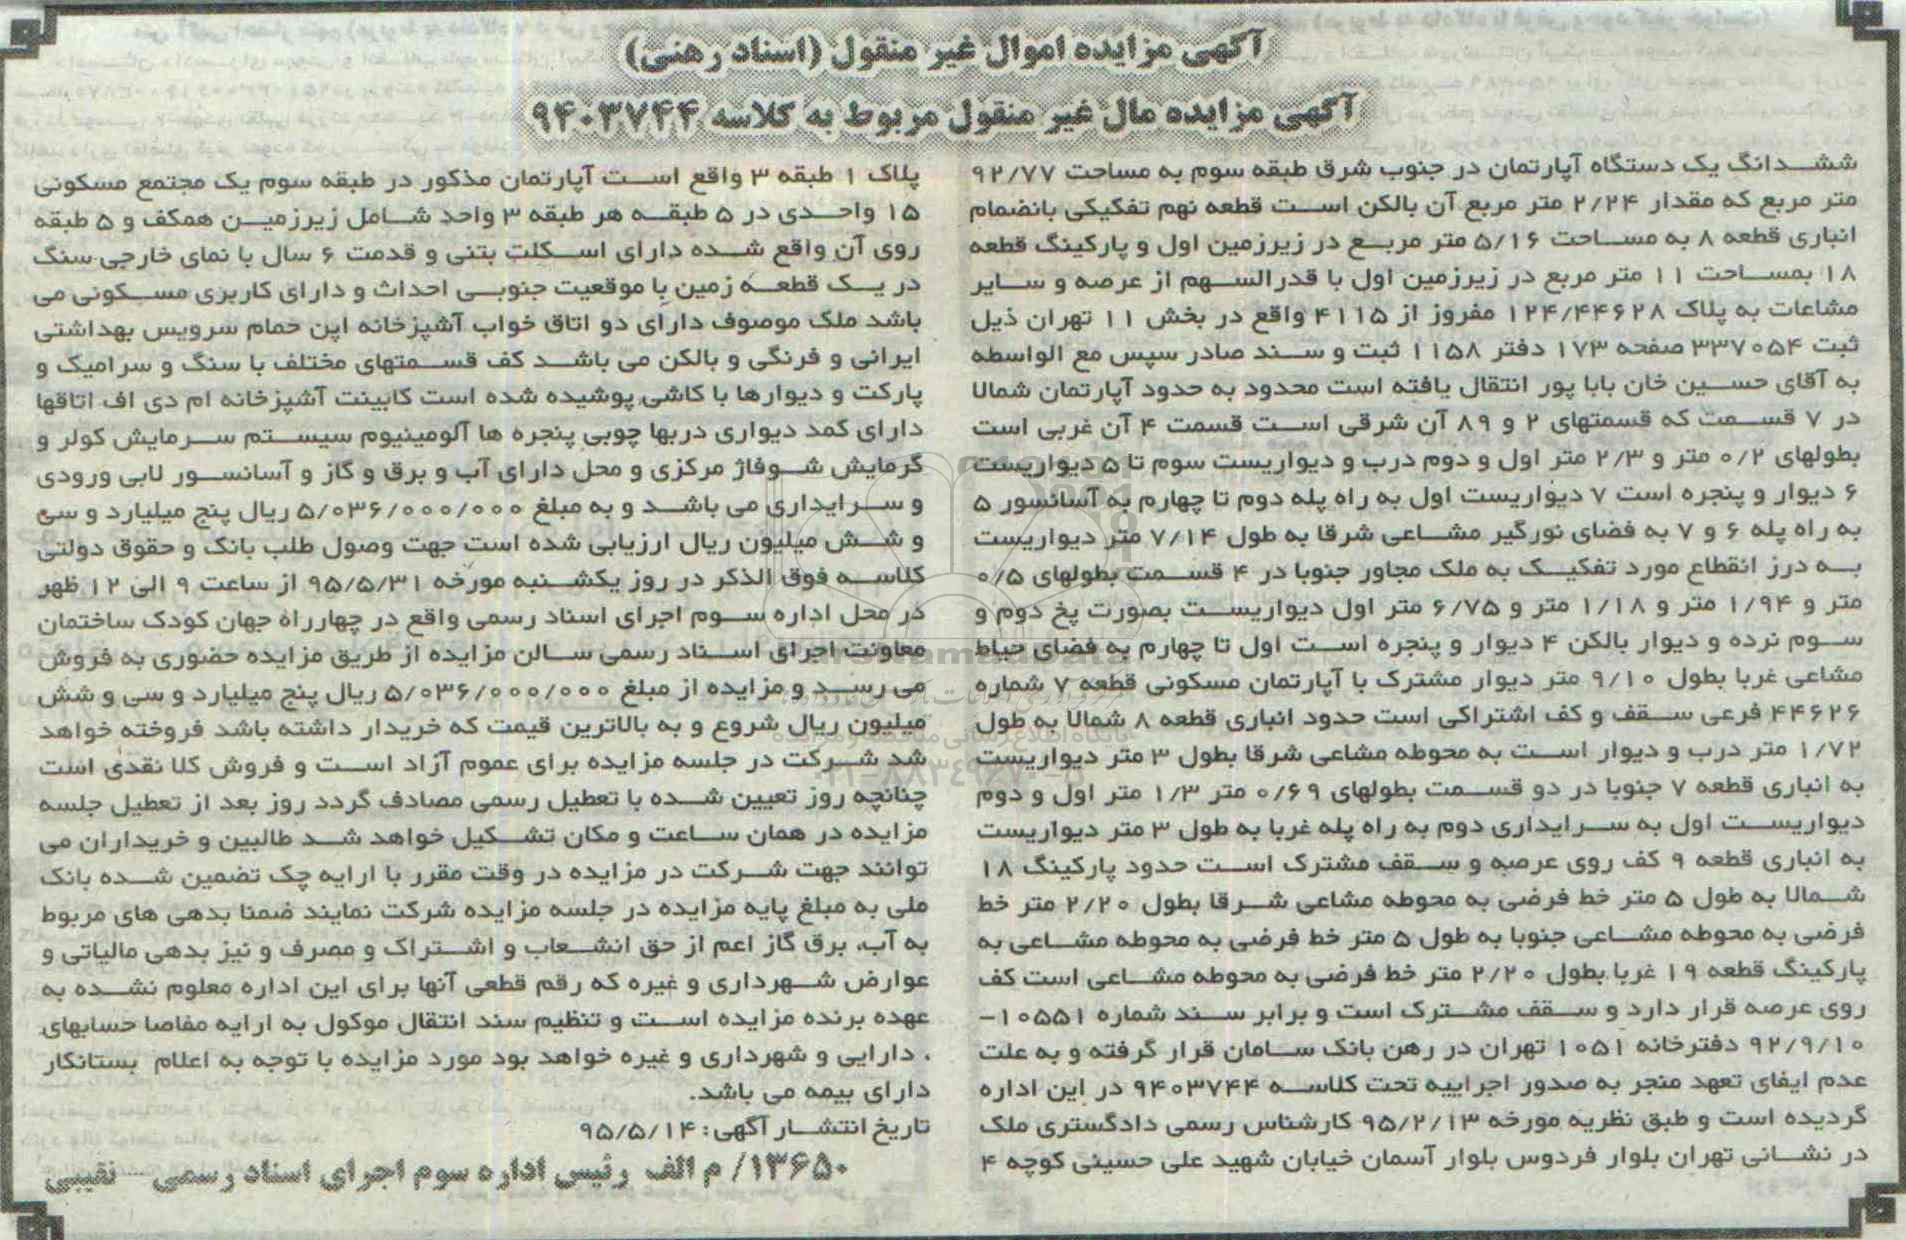 آگهی مزایده اموال غیر منقول (اسناد رهنی)
آگهی مزایده مال غیر منقول مربوط به کلاسه ۹۴۰۳۷۴۴
ششدانگ یک دستگاه آپارتمان در جنوب شرق طبقه سوم به مساحت ۹۲/۷۷
متر مربع که مقدار ۲/۲۴ متر مربع آن بالکن است قطعه نهم تفکیکی بانضمام
انباری قطعه ۸ به مساحت ۵/۱۶ متر مربع در زیرزمین اول و پارکینگ قطعه
۱۸ بمساحت ۱۱ متر مربع در زیرزمین اول با قدرالسهم از عرصه و سایر
مشاعات به پلاک ۱۲۴/۴۴۶۲۸ مفروز از ۴۱۱۵ واقع در بخش ۱۱ تهران ذیل
ثبت ۳۳۷۰۵۴ صفحه ۱۷۳ دفتر ۱۱۵۸ ثبت و سند صادر سپس مع الواسطه
به آقای حسین خان بابا پور انتقال یافته است محدود به حدود آپارتمان شمالا
در ۷ قسمت که قسمتهای ۲ و ۸۹ آن شرقی است قسمت ۴ آن غربی است
بطولهای ۰/۲ متر و ۲/۳ متر اول و دوم درب و دیواریست سوم تا ۵ دیواریست
۶ دیوار و پنجره است ۷ دیواریست اول به راه پله دوم تا چهارم به آسانسور ۵
به راه پله ۶ و ۷ به فضای نورگیر مشاعی شرقا به طول ۷/۱۴ متر دیواریست
به درز انقطاع مورد تفکیک به ملک مجاور جنوبا در ۴ قسمت بطولهای ۰/۵
متر و ۱/۹۴ متر و ۱/۱۸ متر و ۶/۷۵ متر اول دیواریست بصورت پخ دوم و
سوم نرده و دیوار بالکن ۴ دیوار و پنجره است اول تا چهارم به فضای حیاط
مشاعی غربا بطول ۹/۱۰ متر دیوار مشترک با آپارتمان مسکونی قطعه ۷ شماره
۴۴۶۲۶ فرعی سقف و کف اشتراکی است حدود انباری قطعه ۸ شمالا به طول
۱/۷۲ متر درب و دیوار است به محوطه مشاعی شرقا بطول ۳ متر دیواریست
به انباری قطعه ۷ جنوبا در دو قسمت بطولهای ۰/۶۹ متر ۱/۳ متر اول و دوم
دیواریست اول به سرایداری دوم به راه پله غربا به طول ۳ متر دیواریست
به انباری قطعه ۹ کف روی عرصه و سقف مشترک است حدود پارکینگ ۱۸
شمالا به طول ۵ متر خط فرضی به محوطه مشاعی شرقا بطول ۲/۲۰ متر خط
فرضی به محوطه مشاعی جنوبا به طول ۵ متر خط فرضی به محوطه مشاعی به
پارکینگ قطعه ۱۹ غربا بطول ۲/۲۰ متر خط فرضی به محوطه مشاعی است کف
روی عرصه قرار دارد و سقف مشترک است و برابر سند شماره ۱۰۵۵۱-
۹۲/۹/۱۰ دفترخانه ۱۰۵۱ تهران در رهن بانک سامان قرار گرفته و به علت
عدم ایفای تعهد منجر به صدور اجراییه تحت کلاسه ۹۴۰۳۷۴۴ در این اداره
گردیده است و طبق نظریه مورخه ۹۵/۲/۱۳ کارشناس رسمی دادگستری ملک
در نشانی تهران بلوار فردوس بلوار آسمان خیابان شهید علی حسینی کوچه ۴
پلاک ۱ طبقه ۳ واقع است آپارتمان مذکور در طبقه سوم یک مجتمع مسکونی
۱۵ واحدی در ۵ طبقه هر طبقه ۳ واحد شامل زیرزمین همکف و ۵ طبقه
روی آن واقع شده دارای اسکلت بتنی و قدمت ۶ سال با نمای خارجی سنگ
در یک قطعه زمین با موقعیت جنوبی احداث و دارای کاربری مسکونی می
باشد ملک موصوف دارای دو اتاق خواب آشپزخانه اپن حمام سرویس بهداشتی
ایرانی و فرنگی و بالکن می باشد کف قسمتهای مختلف با سنگ و سرامیک و
پارکت و دیوارها با کاشی پوشیده شده است کابینت آشپزخانه ام دی اف اتاقها
دارای کمد دیواری دربها چوبی پنجره ها آلومینیوم سیستم سرمایش کولر و
گرمایش شوفاژ مرکزی و محل دارای آب و برق و گاز و آسانسور لابی ورودی
و سرایداری می باشد و به مبلغ ۵/۰۳۶/۰۰۰/۰۰۰ ریال پنج میلیارد و سی
و شش میلیون ریال ارزیابی شده است جهت وصول طلب بانک و حقوق دولتی
کلاسه فوق الذکر در روز یکشنبه مورخه ۹۵/۵/۳۱ از ساعت ۹ الی ۱۲ ظهر
در محل اداره سوم اجرای اسناد رسمی واقع در چهارراه جهان کودک ساختمان
معاونت اجرای اسناد رسمی سالن مزایده از طریق مزایده حضوری به فروش
می رسد و مزایده از مبلغ ۵/۰۳۶/۰۰۰/۰۰۰ ریال پنج میلیارد و سی و شش
میلیون ریال شروع و به بالاترین قیمت که خریدار داشته باشد فروخته خواهد
شد شرکت در جلسه مزایده برای عموم آزاد است و فروش کلا نقدی است
چنانچه روز تعیین شده با تعطیل رسمی مصادف گردد روز بعد از تعطیل جلسه
مزایده در همان ساعت و مکان تشکیل خواهد شد طالبین و خریداران می
توانند جهت شرکت در مزایده در وقت مقرر با ارایه چک تضمین شده بانک
ملی به مبلغ پایه مزایده در جلسه مزایده شرکت نمایند ضمنا بدهی های مربوط
به آب، برق گاز اعم از حق انشعاب و اشتراک و مصرف و نیز بدهی مالیاتی و
عوارض شهرداری و غیره که رقم قطعی آنها برای این اداره معلوم نشده به
عهده برنده مزایده است و تنظیم سند انتقال موکول به ارایه مفاصا حسابهای
، دارایی و شهرداری و غیره خواهد بود مورد مزایده با توجه به اعلام بستانکار
دارای بیمه می باشد.
تاریخ انتشار آگهی: ۹۵/۵/۱۴
۱۳۶۵۰/ م الف رئیس اداره سوم اجرای اسناد رسمی --- نقیبی